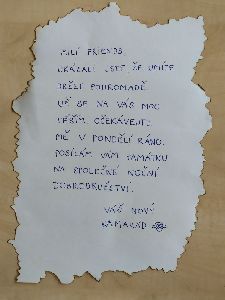 MILÍ FRIENDS
UKÁZALI JSTE, ŽE UMÍTE
DRŽET POHROMADĚ
UŽ SE NA VÁS MOC
TĚŠÍM. OČEKÁVEJTE
MĚ V PONDĚLÍ RÁNO.
POSÍLÁM VÁM PAMÁTKU
NA SPOLEČNÉ NOČNÍ
DOBRODRUŽSTVÍ.
VÁŠ NOVÝ
KAMARÁD